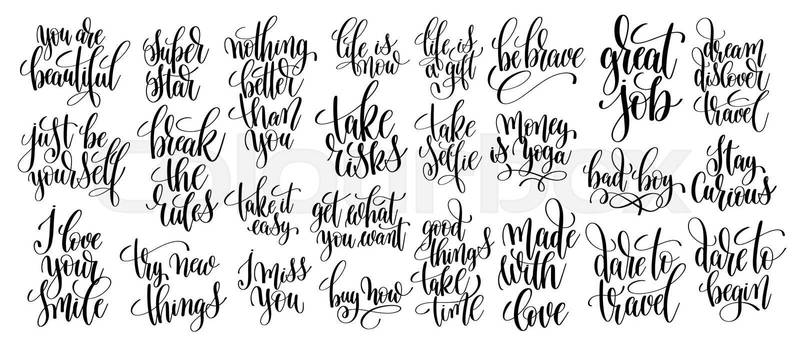 you are
beautiful
super
star
nothing
better
than
you
life is
now
life is
a gift
be brave
great
job
dream
discover
travel
just be
yourself
break
the
rules
take
risks
take
selfie
money
is yoga
bad boy
stay
curious
I love
your
smile
try new
things
take it
easy
I miss
you
get what
you want
buy now
good
things
take
time
made
with
love
dare to
travel
dare to
begin
colourbox